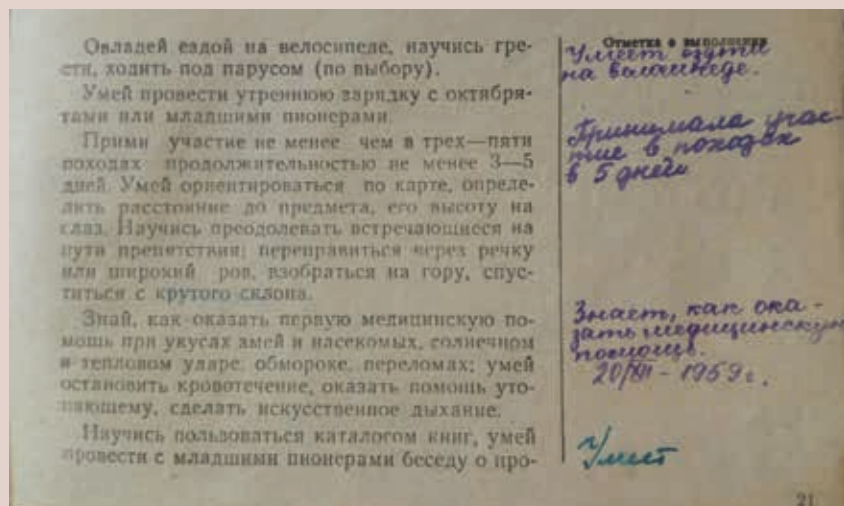 Овладей ездой на велосипеде, научись гре-
сти, ходить под парусом (по выбору).
Умей провести утреннюю зарядку с октября-
тами или младшими пионерами.
Прими участие не менее чем в трех—пяти
походах продолжительностью не менее 3—5
дней. Умей ориентироваться по карте, опреде-
лить расстояние до предмета, его высоту на
глаз. Научись преодолевать встречающиеся на
пути препятствия: переправиться через речку
или широкий ров, взобраться на гору, спус-
титься с крутого склона.
Знай, как оказать первую медицинскую по-
мощь при укусах змей и насекомых, солнечном
и тепловом ударе, обмороке, переломах; умей
остановить кровотечение, оказать помощь уто-
пающему, сделать искусственное дыхание.
Научись пользоваться каталогом книг, умей
провести с младшими пионерами беседу о про-
Отметка о выполнении
Умеет ездить
на велосипеде.
Принимала учас-
тие в походах
в 5 дней
Знает, как ока-
зать медицинскую
помощь.
20/XII - 1959 г.
Умеет
21